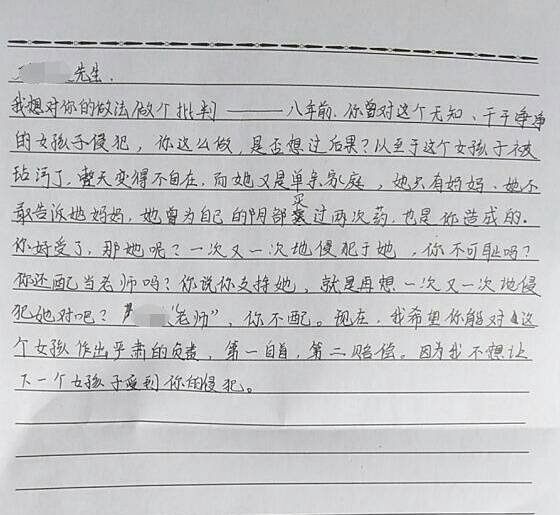 先生.
我想对你的做法做个批判——八年前.你曾对这个无知、干干净净
的女孩子侵犯,你这么做,是否想过后果?以至于这个女孩子被
玷污了,整天变得不自在,而她又是单亲家庭,她只有妈妈,她不
敢告诉她妈妈,她曾为自己的阴部买过两次药,也是你造成的.
你好受了,那她呢?一次又一次地侵犯于她,你不可耻吗?
你还配当老师吗?你说你支持她,就是再想一次又一次地侵
犯她对吧?"老师",你不配。现在,我希望你能对这
个女孩作出严肃的负责,第一自首,第二赔偿。因为我不想让
下一个女孩子受到你的侵犯。